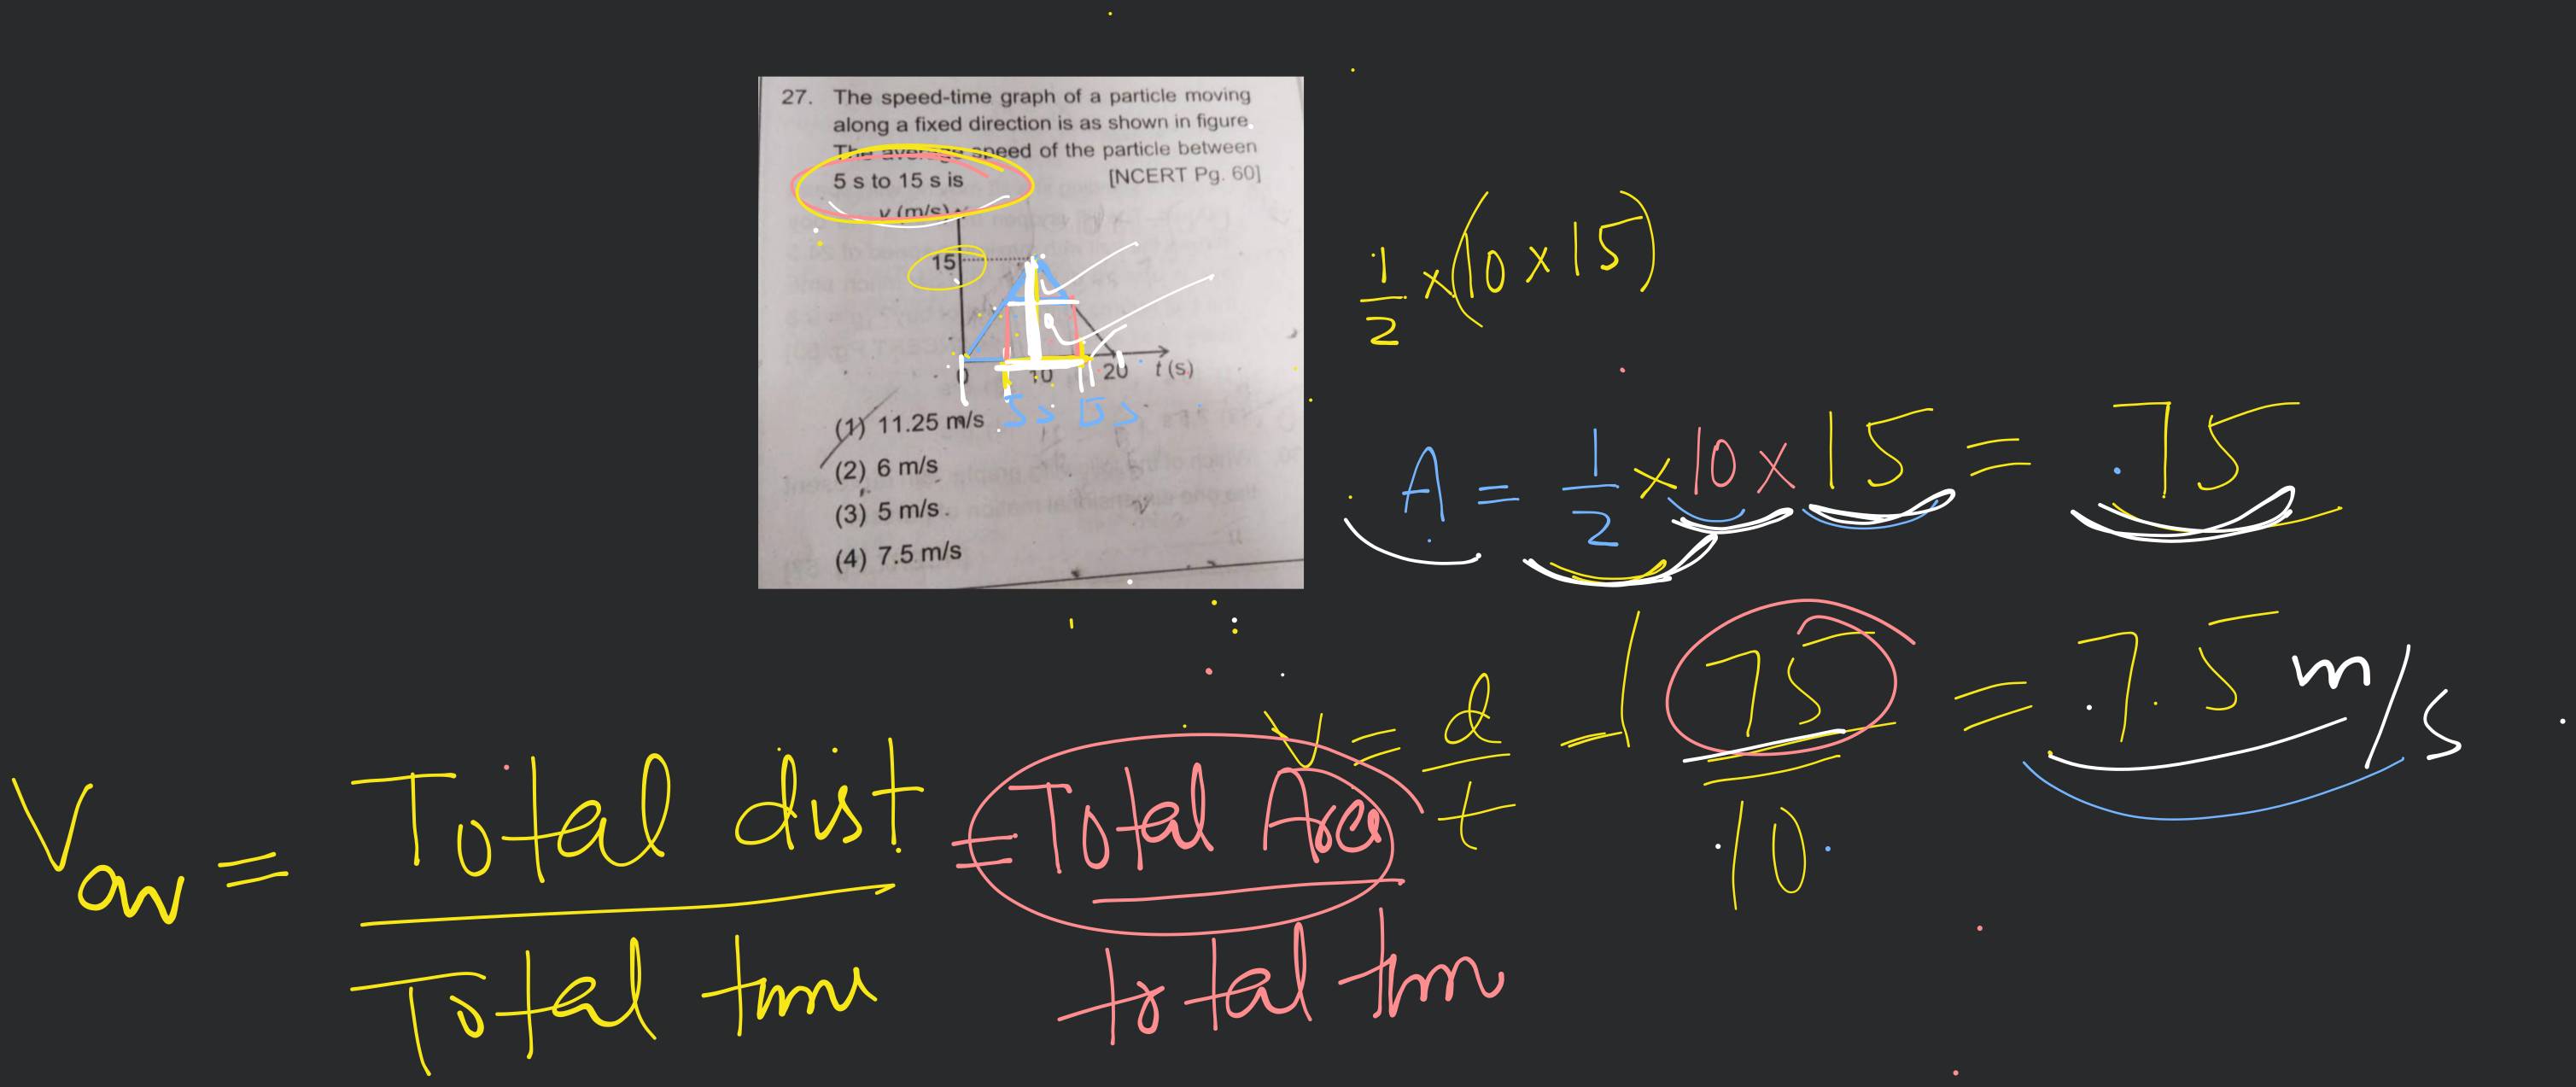 27. The speed-time graph of a particle moving
along a fixed direction is as shown in figure.
The average speed of the particle between
5 s to 15 s is [NCERT Pg. 60]
v (m/s)
15
0 10 20 t (s)
5 s 15 s
(1) 11.25 m/s
(2) 6 m/s
(3) 5 m/s
(4) 7.5 m/s
1/2 × (10 × 15)
A = 1/2 × 10 × 15 = 75
v = d/t = 75/10 = 7.5 m/s
Vav = Total dist / Total time = Total Area / total tm